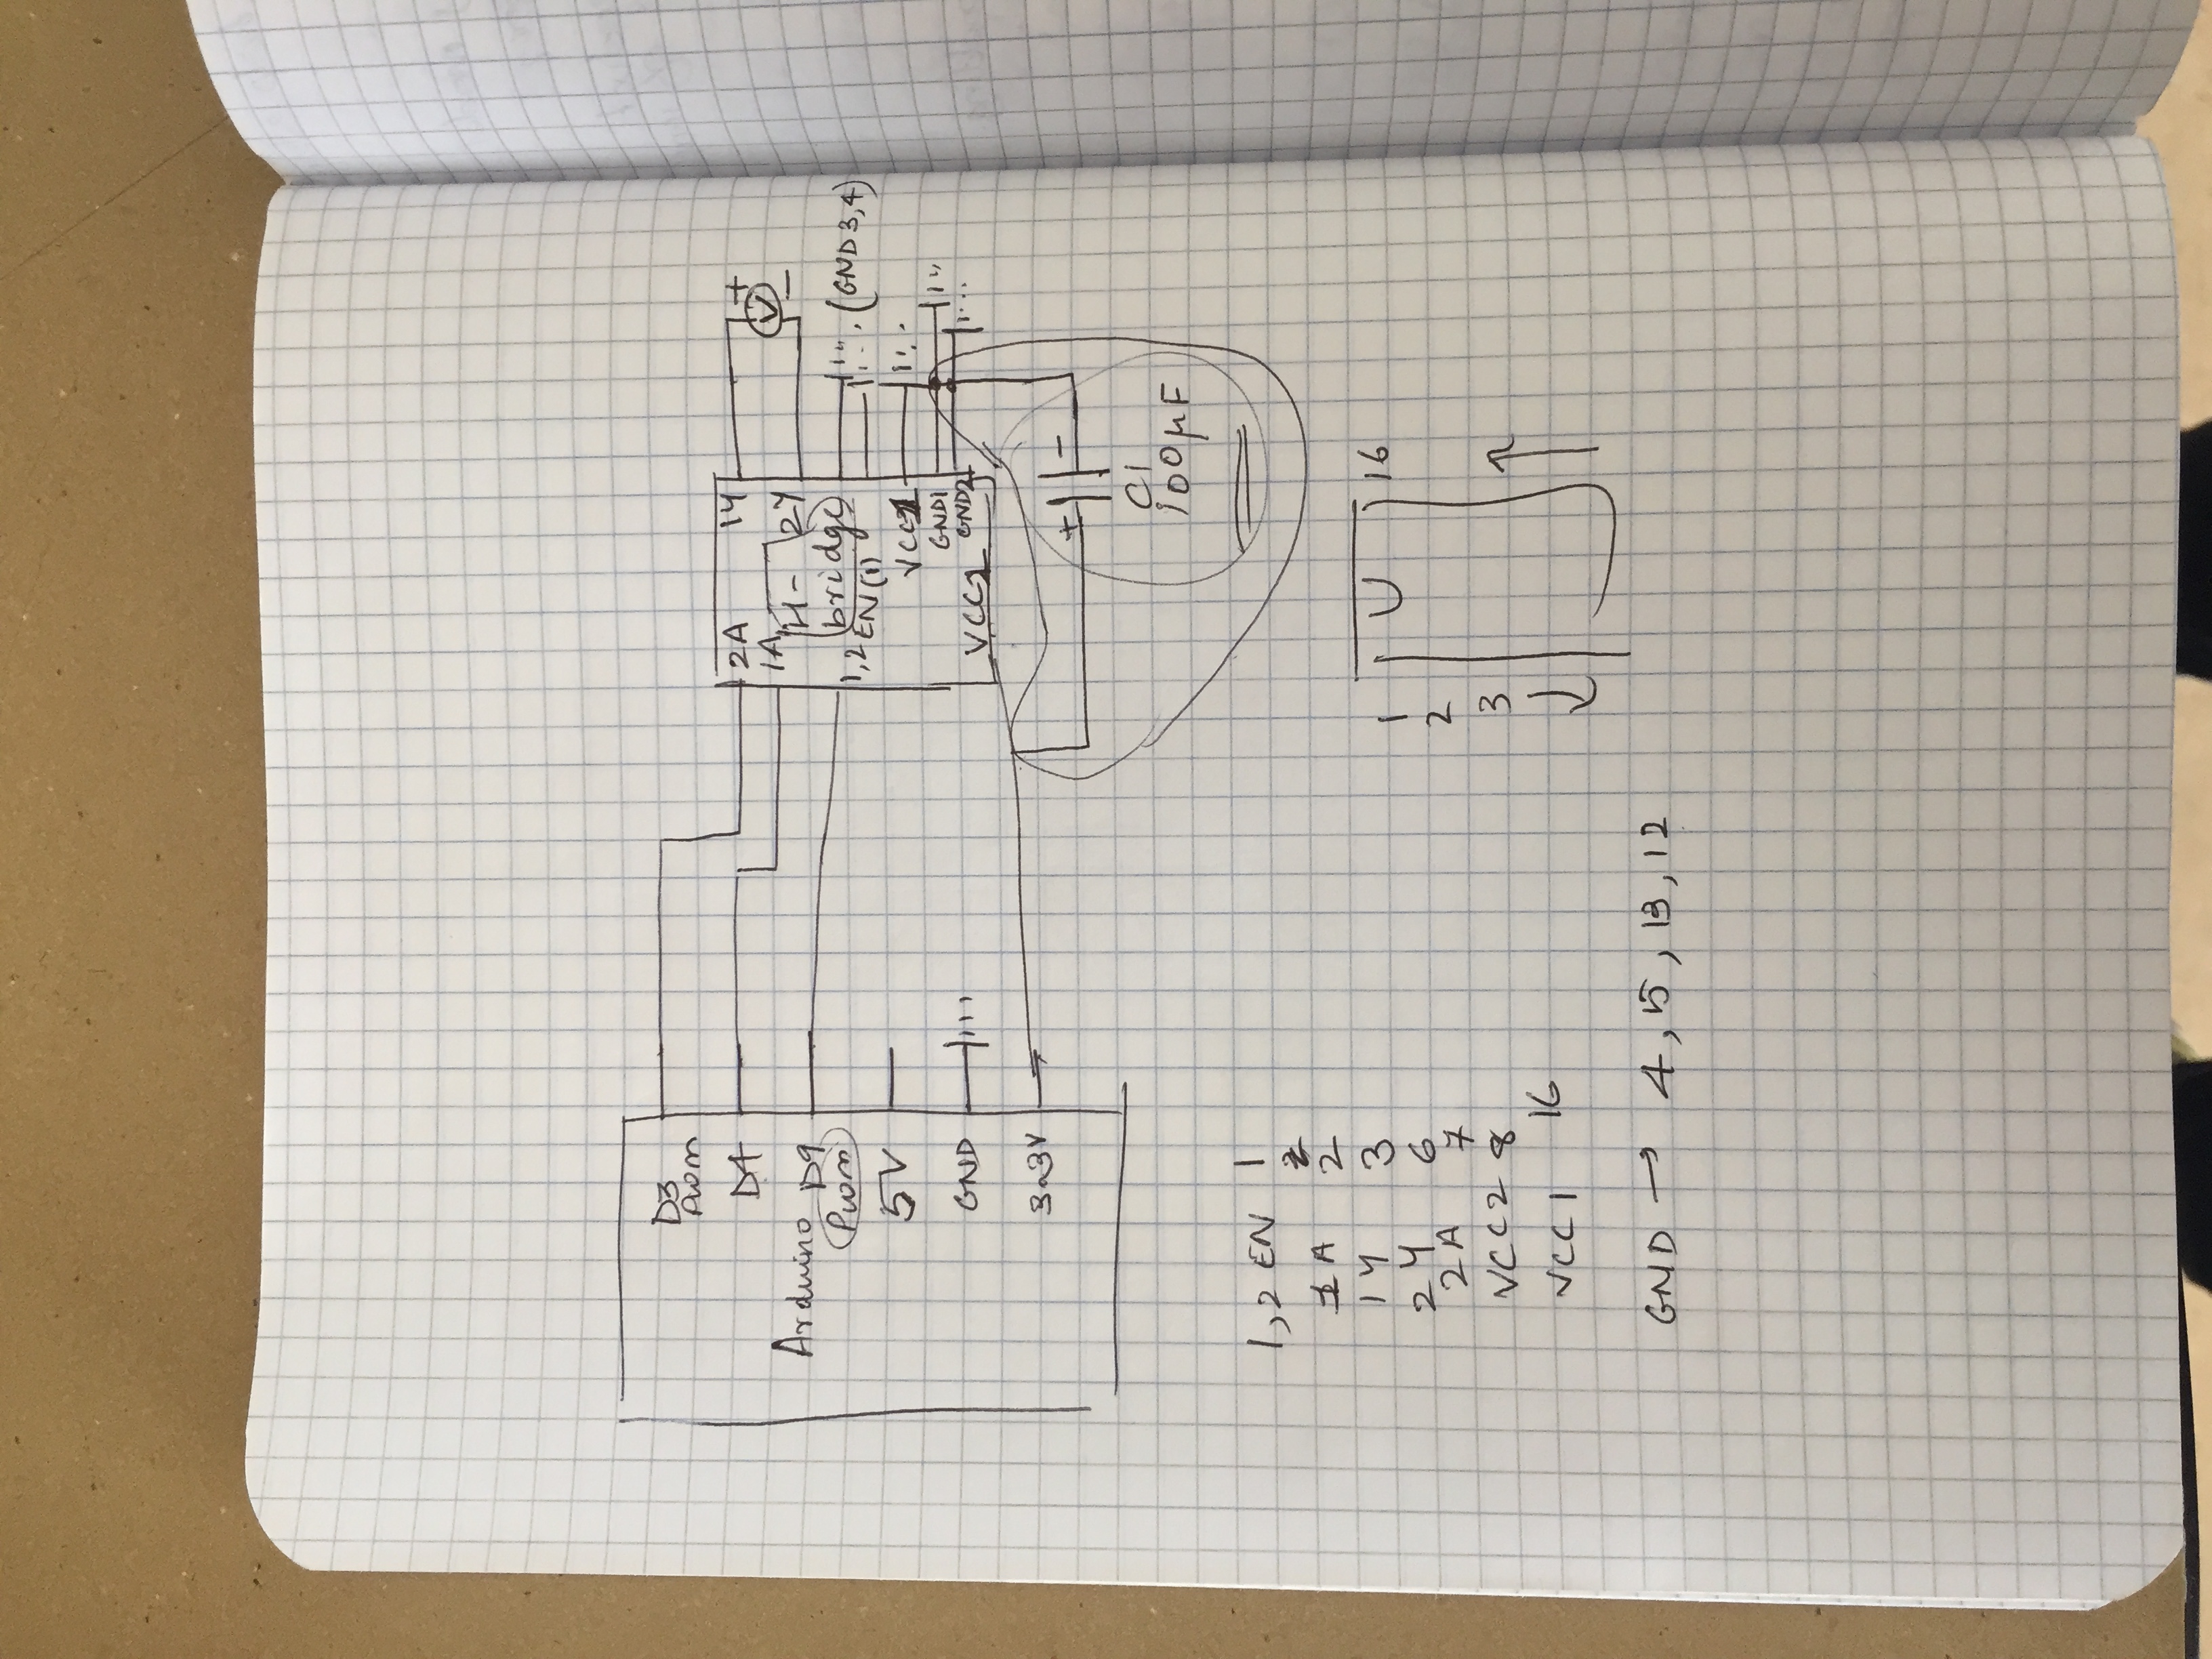 D3
Pwm
D4
Arduino D9
Pwm
5V
GND
3.3V
2A 1Y
1A 2Y
H-
bridge
1,2 EN(1)
VCC1
GND1
GND2
VCC2
+
V
-
(GND3,4)
+ -
C1
100μF
1,2 EN 1
1A 2
1Y 3
2Y 6
2A 7
VCC2 8
VCC1 16
GND → 4,5,13,12
1 U 16
2
3